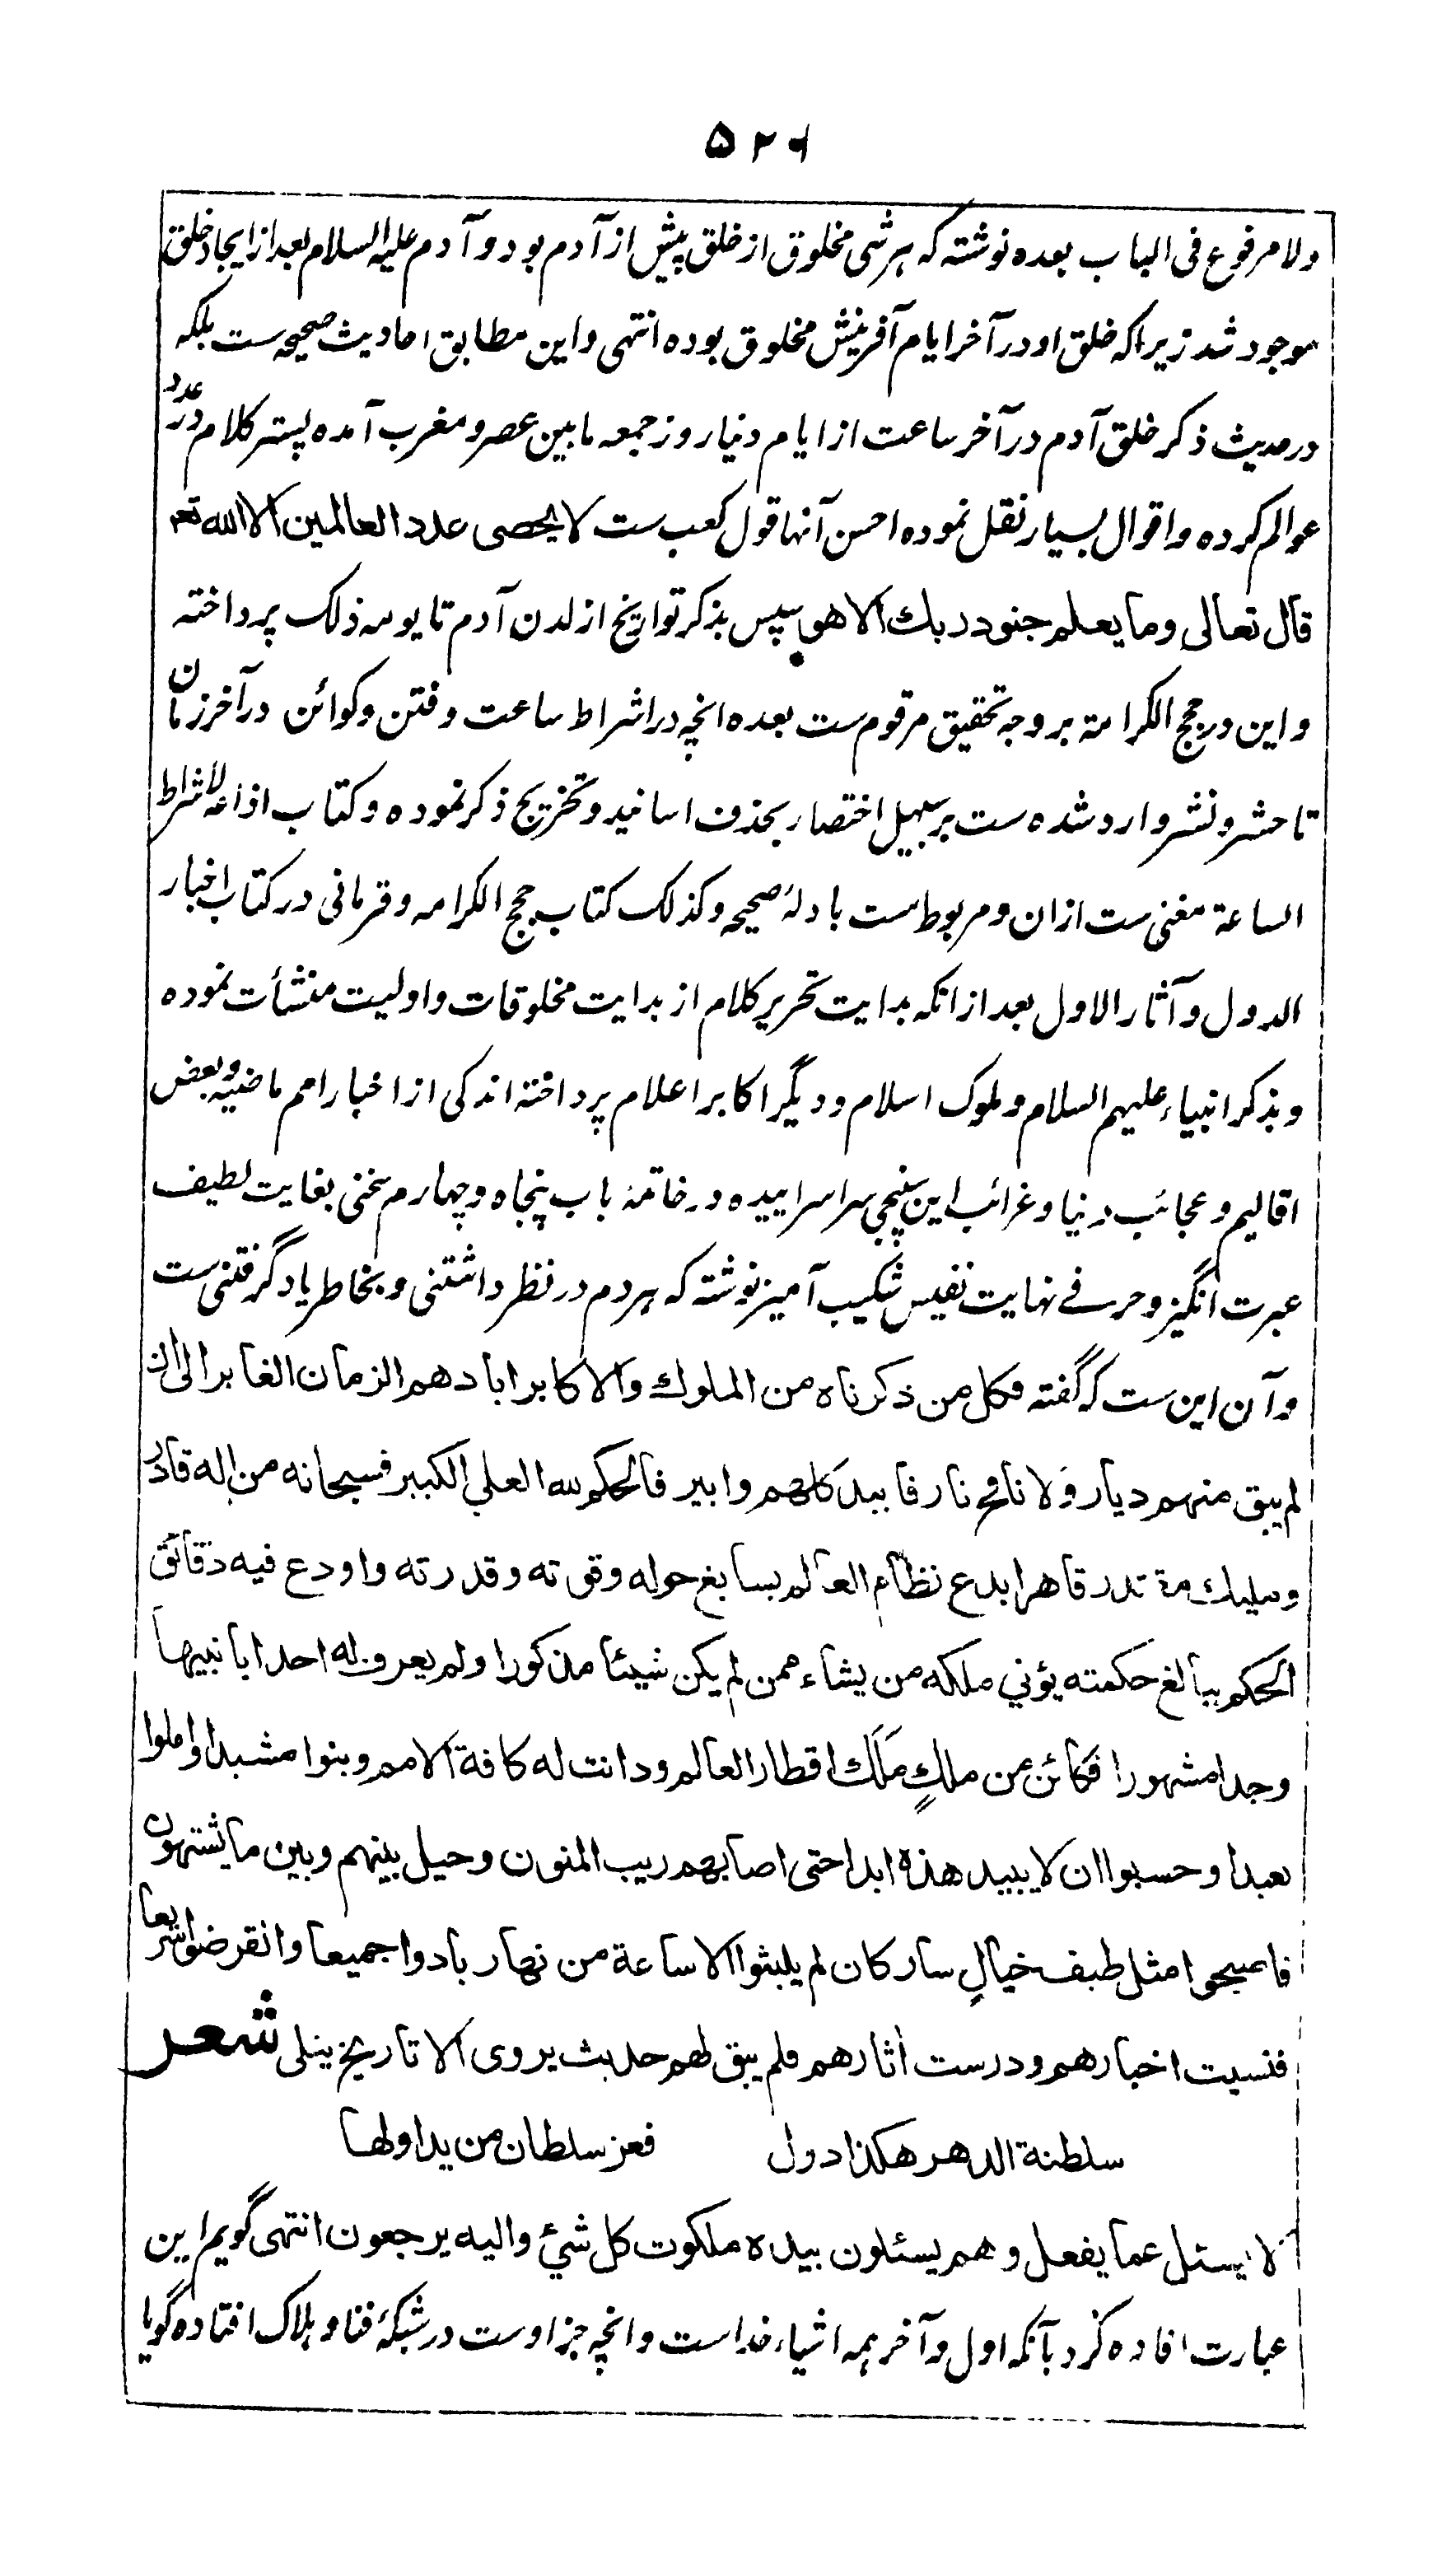 ۵۲۶
ولا مرفوع فی الباب بعده نوشته که هر شی مخلوق از خلق پیش از آدم بود و آدم علیه السلام بعد از ایجاد خلق
موجود شد زیراکه خلق او در آخر ایام آفرینش مخلوق بوده انتهی و این مطابق احادیث صحیحه ست بلکه
در حدیث ذکر خلق آدم در آخر ساعت از ایام دنیا روز جمعه مابین عصر و مغرب آمده پستر کلام در عدد
عوالم کرده و اقوال بسیار نقل نموده احسن آنها قول کعب ست لا یحصی عدد العالمین الا الله تعم
قال تعالی وما یعلم جنود ربك الا هو سپس بذکر تواریخ از لدن آدم تا یومه ذلک پرداخته
و این در حجج الکرامة بر وجه تحقیق مرقوم ست بعده انچه در اشراط ساعت و فتن و کوائن در آخر زمان
تا حشر و نشر وارد شده ست بر سبیل اختصار بحذف اسانید و تخریج ذکر نموده و کتاب اذاعه لاشراط
الساعة مغنی ست ازان و مربوط ست بادلهٔ صحیحه و کذلک کتاب حجج الکرامه و قرمانی در کتاب اخبار
الدول و آثار الاول بعد ازانکه بدایت تحریر کلام از بدایت مخلوقات و اولیت منشأت نموده
و بذکر انبیاء علیهم السلام و ملوک اسلام و دیگر اکابر اعلام پرداخته اندکی از اخبار امم ماضیه و بعض
اقالیم و عجائب دنیا و غرائب این سپنجی سرا سراییده در خاتمهٔ باب پنجاه و چهارم سخنی بغایت لطیف
عبرت انگیز و حرفے نهایت نفیس شکیب آمیز نوشته که هر دم در نظر داشتنی و بخاطر یاد گرفتنی ست
و آن این ست که گفته فكل من ذكرناه من الملوك والاكابر ابادهم الزمان الغابر الى ان
لم يبق منهم ديار ولا نافخ نار فابيد كلهم وابير فالحكم لله العلي الكبير فسبحانه من اله قادر
ومليك مقتدر قاهر ابدع نظام العالم بسابغ حوله وقوته وقدرته واودع فيه دقائق
الحكم ببالغ حكمته يؤتي ملكه من يشاء ممن لم يكن شيئا مذكورا ولم يعرف له احد ابا نبيها
وجدا مشهورا فكائن من ملكٍ مَلَك اقطار العالم ودانت له كافة الامم وبنوا مشيدا واملوا
بعيدا وحسبوا ان لا يبيد هذه ابدا حتى اصابهم ريب المنون وحيل بينهم وبين ما يشتهون
فاصبحوا مثل طيف خيالٍ سار كان لم يلبثوا الا ساعة من نهار بادوا جميعا وانقرضوا سريعا
فنسيت اخبارهم ودرست اثارهم فلم يبق لهم حديث يروى الا تاريخ يتلى شعر
سلطنة الدهر هكذا دول فعز سلطان من يداولها
لا يسئل عما يفعل وهم يسئلون بيده ملكوت كل شيئ واليه يرجعون انتهى گویم این
عبارت افاده کرد بآنکه اول و آخر همه اشیاء خداست و انچه جز اوست در شبکهٔ فنا و هلاک افتاده گویا